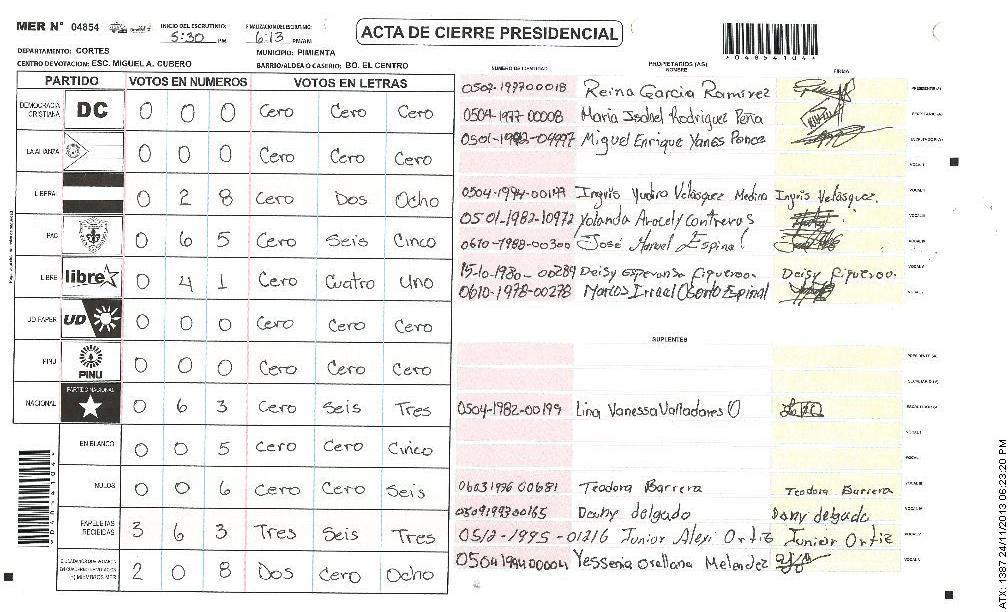 MER N° 04854
INICIO DEL ESCRUTINIO: 5:30 PM
FINALIZACION DEL ESCRUTINIO: 6:13 PM/AM
ACTA DE CIERRE PRESIDENCIAL
*04854104*
DEPARTAMENTO: CORTES
MUNICIPIO: PIMIENTA
CENTRO DE VOTACION: ESC. MIGUEL A. CUBERO
BARRIO/ALDEA O CASERIO: BO. EL CENTRO
PARTIDO VOTOS EN NUMEROS VOTOS EN LETRAS
DEMOCRACIA CRISTIANA DC 0 0 0 Cero Cero Cero
LA ALIANZA 0 0 0 Cero Cero Cero
LIBERAL 0 2 8 Cero Dos Ocho
PAC 0 6 5 Cero Seis Cinco
LIBRE libre 0 4 1 Cero Cuatro Uno
UD FAPER UD 0 0 0 Cero Cero Cero
PINU PINU 0 0 0 Cero Cero Cero
NACIONAL PARTIDO NACIONAL 0 6 3 Cero Seis Tres
EN BLANCO 0 0 5 Cero Cero Cinco
NULOS 0 0 6 Cero Cero Seis
PAPELETAS RECIBIDAS 3 6 3 Tres Seis Tres
2 0 8 Dos Cero Ocho
NUMERO DE IDENTIDAD PROPIETARIOS (AS) NOMBRE FIRMA
Reina Garcia Ramirez PRESIDENTE (A)
0504-1977-00008 Maria Isabel Rodriguez Peña SECRETARIO (A)
Miguel Enrique Yanes Ponce ESCRUTADOR (A)
VOCAL I
Velasquez Medina Ingris Velasquez. VOCAL II
0501-1982-10972 Yolanda Aracely Contreras VOCAL III
0610-1988-00300 José Manuel Espinal VOCAL IV
Deisy Figueroa. VOCAL V
0610-1978-00278 Marcos Osorto Espinal
SUPLENTES
PRESIDENTE (A)
SECRETARIO (A)
0504-1982-00199 Lina Vanessa Valladares O ESCRUTADOR (A)
VOCAL I
VOCAL II
Teodora Barrera Teodora Barrera VOCAL III
Dany delgado Dany delgado VOCAL IV
0512-1995-01216 Junior Alexi Ortiz Junior Ortiz
Yessenia Orellana Melendez
*04854104*
ATX: 1387 24/11/2013 06:23:20 PM